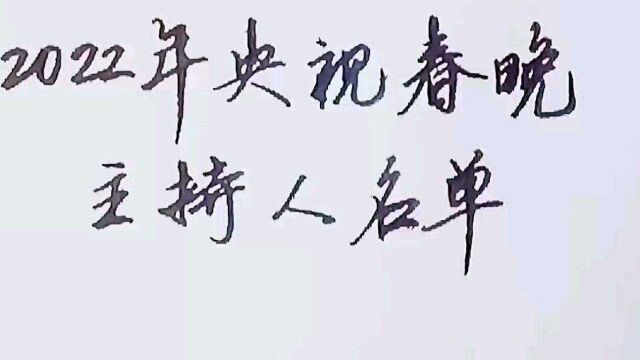 2022年央视春晚
主持人名单